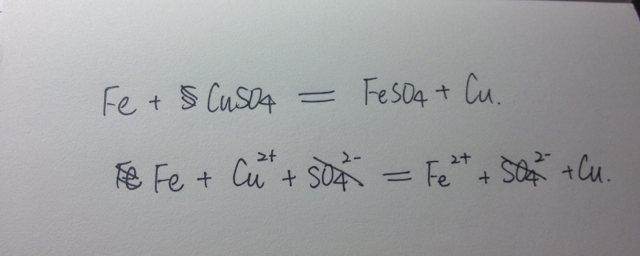 Fe + CuSO4 = FeSO4 + Cu.
Fe + Cu²⁺ + SO4²⁻ = Fe²⁺ + SO4²⁻ + Cu.